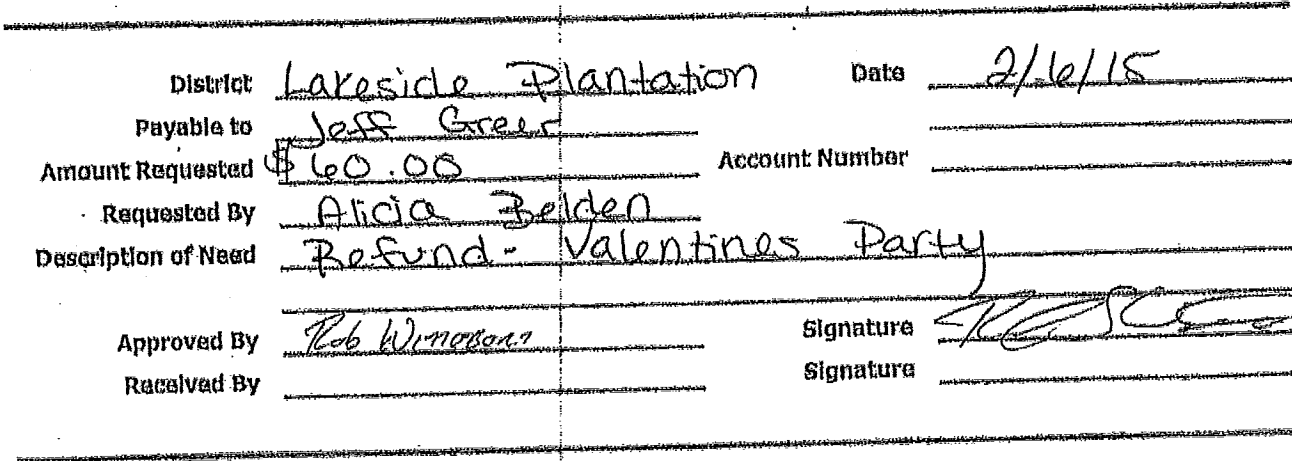 District Lakeside Plantation Date 2/6/15
Payable to Jeff Greer
Amount Requested $60.00 Account Number
Requested By Alicia Belden
Description of Need Refund- Valentines Party
Approved By Rob Signature
Received By Signature